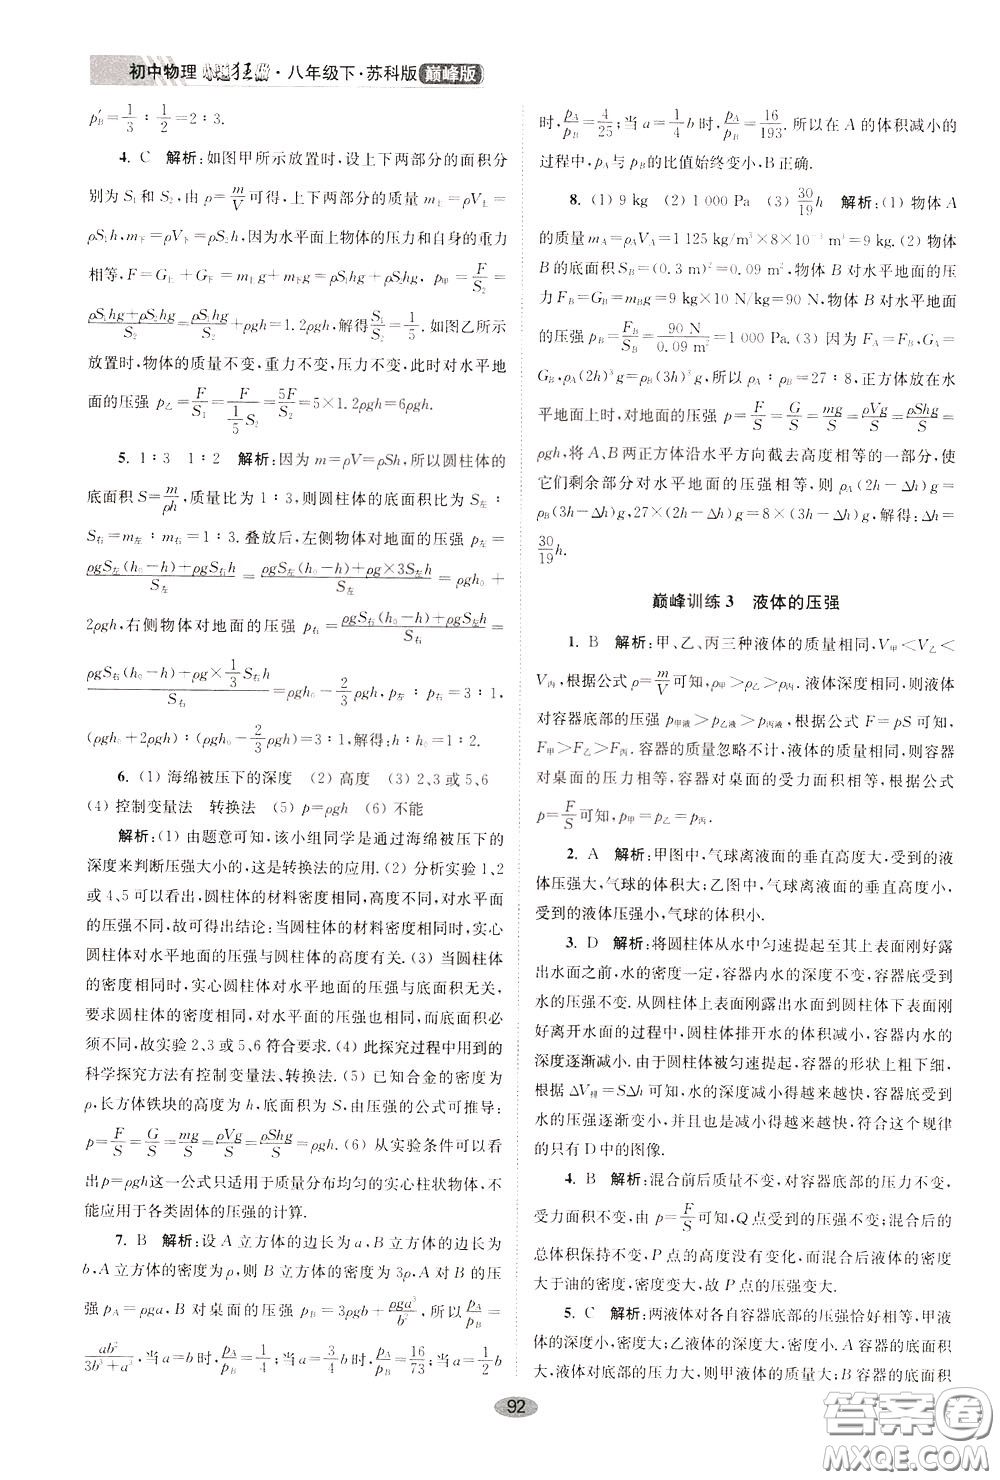 初中物理 小题狂做·八年级下·苏科版 巅峰版
p′B=1/3∶1/2=2∶3.
4. C 解析:如图甲所示放置时,设上下两部分的面积分
别为S₁和S₂,由ρ=m/V可得,上下两部分的质量m上=ρV上=
ρS₁h,m下=ρV下=ρS₂h,因为水平面上物体的压力和自身的重力
相等,F=G上+G下=m上g+m下g=ρS₁hg+ρS₂hg, p甲=F/S₂
(ρS₁hg+ρS₂hg)/S₂=ρS₁hg/S₂+ρgh=1.2ρgh,解得:S₁/S₂=1/5.如图乙所示
放置时,物体的质量不变,重力不变,压力不变,此时对水平地
面的压强 p乙=F/S₁=F/(1/5 S₂)=5F/S₂=5×1.2ρgh=6ρgh.
5. 1∶3 1∶2 解析:因为m=ρV=ρSh,所以圆柱体的
底面积S=m/ρh,质量比为1∶3,则圆柱体的底面积比为S左∶
S右=m左∶m右=1∶3.叠放后,左侧物体对地面的压强 p左=
(ρgS左(h₀-h)+ρgS右h)/S左=(ρgS左(h₀-h)+ρg×3S左h)/S左=ρgh₀+
2ρgh,右侧物体对地面的压强 p右=(ρgS右(h₀-h)+ρgS左h)/S右=
(ρgS右(h₀-h)+ρg×1/3 S右h)/S右=ρgh₀-2/3 ρgh,p左∶p右=3∶1,
(ρgh₀+2ρgh)∶(ρgh₀-2/3 ρgh)=3∶1,解得:h∶h₀=1∶2.
6. (1) 海绵被压下的深度 (2) 高度 (3) 2、3或5、6
(4) 控制变量法 转换法 (5) p=ρgh (6) 不能
解析:(1) 由题意可知,该小组同学是通过海绵被压下的
深度来判断压强大小的,这是转换法的应用.(2) 分析实验1、2
或4、5可以看出,圆柱体的材料密度相同,高度不同,对水平面
的压强不同,故可得出结论:当圆柱体的材料密度相同时,实心
圆柱体对水平地面的压强与圆柱体的高度有关.(3) 当圆柱体
的密度相同时,实心圆柱体对水平地面的压强与底面积无关,
要求圆柱体的密度相同,对水平面的压强相同,而底面积必
须不同,故实验2、3或5、6符合要求.(4) 此探究过程中用到的
科学探究方法有控制变量法、转换法.(5) 已知合金的密度为
ρ,长方体铁块的高度为h,底面积为S,由压强的公式可推导:
p=F/S=G/S=mg/S=ρVg/S=ρShg/S=ρgh.(6) 从实验条件可以看
出p=ρgh这一公式只适用于质量分布均匀的实心柱状物体,不
能应用于各类固体的压强的计算.
7. B 解析:设A立方体的边长为a,B立方体的边长为
b,A立方体的密度为ρ,则B立方体的密度为3ρ,A对B的压
强 pA=ρga,B对桌面的压强 pB=3ρgb+ρga³/b²,所以pA/pB=
ab²/(3b³+a³).当a=b时,pA/pB=1/4;当a=3/4 b时,pA/pB=16/73;当a=1/2 b
时,pA/pB=4/25;当a=1/4 b时,pA/pB=16/193.所以在A的体积减小的
过程中,pA与pB的比值始终变小,B正确.
8. (1) 9 kg (2) 1 000 Pa (3) 30/19 h 解析:(1) 物体A
的质量mA=ρAVA=1 125 kg/m³×8×10⁻³ m³=9 kg.(2) 物体
B的底面积SB=(0.3 m)²=0.09 m²,物体B对水平地面的压
力FB=GB=mBg=9 kg×10 N/kg=90 N,物体B对水平地面
的压强 pB=FB/SB=90 N/0.09 m²=1 000 Pa.(3) 因为FA=FB,GA=
GB,ρA(2h)³g=ρB(3h)³g,所以ρA∶ρB=27∶8,正方体放在水
平地面上时,对地面的压强 p=F/S=G/S=mg/S=ρVg/S=ρShg/S=
ρgh,将A、B两正方体沿水平方向截去高度相等的一部分,使
它们剩余部分对水平地面的压强相等,则ρA(2h-Δh)g=
ρB(3h-Δh)g,27×(2h-Δh)g=8×(3h-Δh)g,解得:Δh=
30/19 h.
巅峰训练3 液体的压强
1. B 解析:甲、乙、丙三种液体的质量相同,V甲<V乙<
V丙,根据公式ρ=m/V可知,ρ甲>ρ乙>ρ丙.液体深度相同,则液体
对容器底部的压强p甲液>p乙液>p丙液,根据公式F=pS可知,
F甲>F乙>F丙.容器的质量忽略不计,液体的质量相同,则容器
对桌面的压力相等,容器对桌面的受力面积相等,根据公式
p=F/S可知,p甲=p乙=p丙.
2. A 解析:甲图中,气球离液面的垂直高度大,受到的液
体压强大,气球的体积大;乙图中,气球离液面的垂直高度小,
受到的液体压强小,气球的体积小.
3. D 解析:将圆柱体从水中匀速提起至其上表面刚好露
出水面之前,水的密度一定,容器内水的深度不变,容器底受到
水的压强不变.从圆柱体上表面刚露出水面到圆柱体下表面刚
好离开水面的过程中,圆柱体排开水的体积减小,容器内水的
深度逐渐减小.由于圆柱体被匀速提起,容器的形状上粗下细,
根据ΔV排=SΔh可知,水的深度减小得越来越快,容器底受到
水的压强逐渐变小,并且也是减小得越来越快,符合这个规律
的只有D中的图像.
4. B 解析:混合前后质量不变,对容器底部的压力不变,
受力面积不变,由p=F/S可知,Q点受到的压强不变;混合后的
总体积保持不变,P点的高度没有变化,而混合后液体的密度
大于油的密度,即密度变大,故P点的压强变大.
5. C 解析:两液体对各自容器底部的压强恰好相等,甲液
体的深度小,密度大;乙液体的深度大,密度小.A容器的底面积
大,液体对底部的压力大,则甲液体的质量大;B容器的底面积
92
答案圈
MXQE.COM